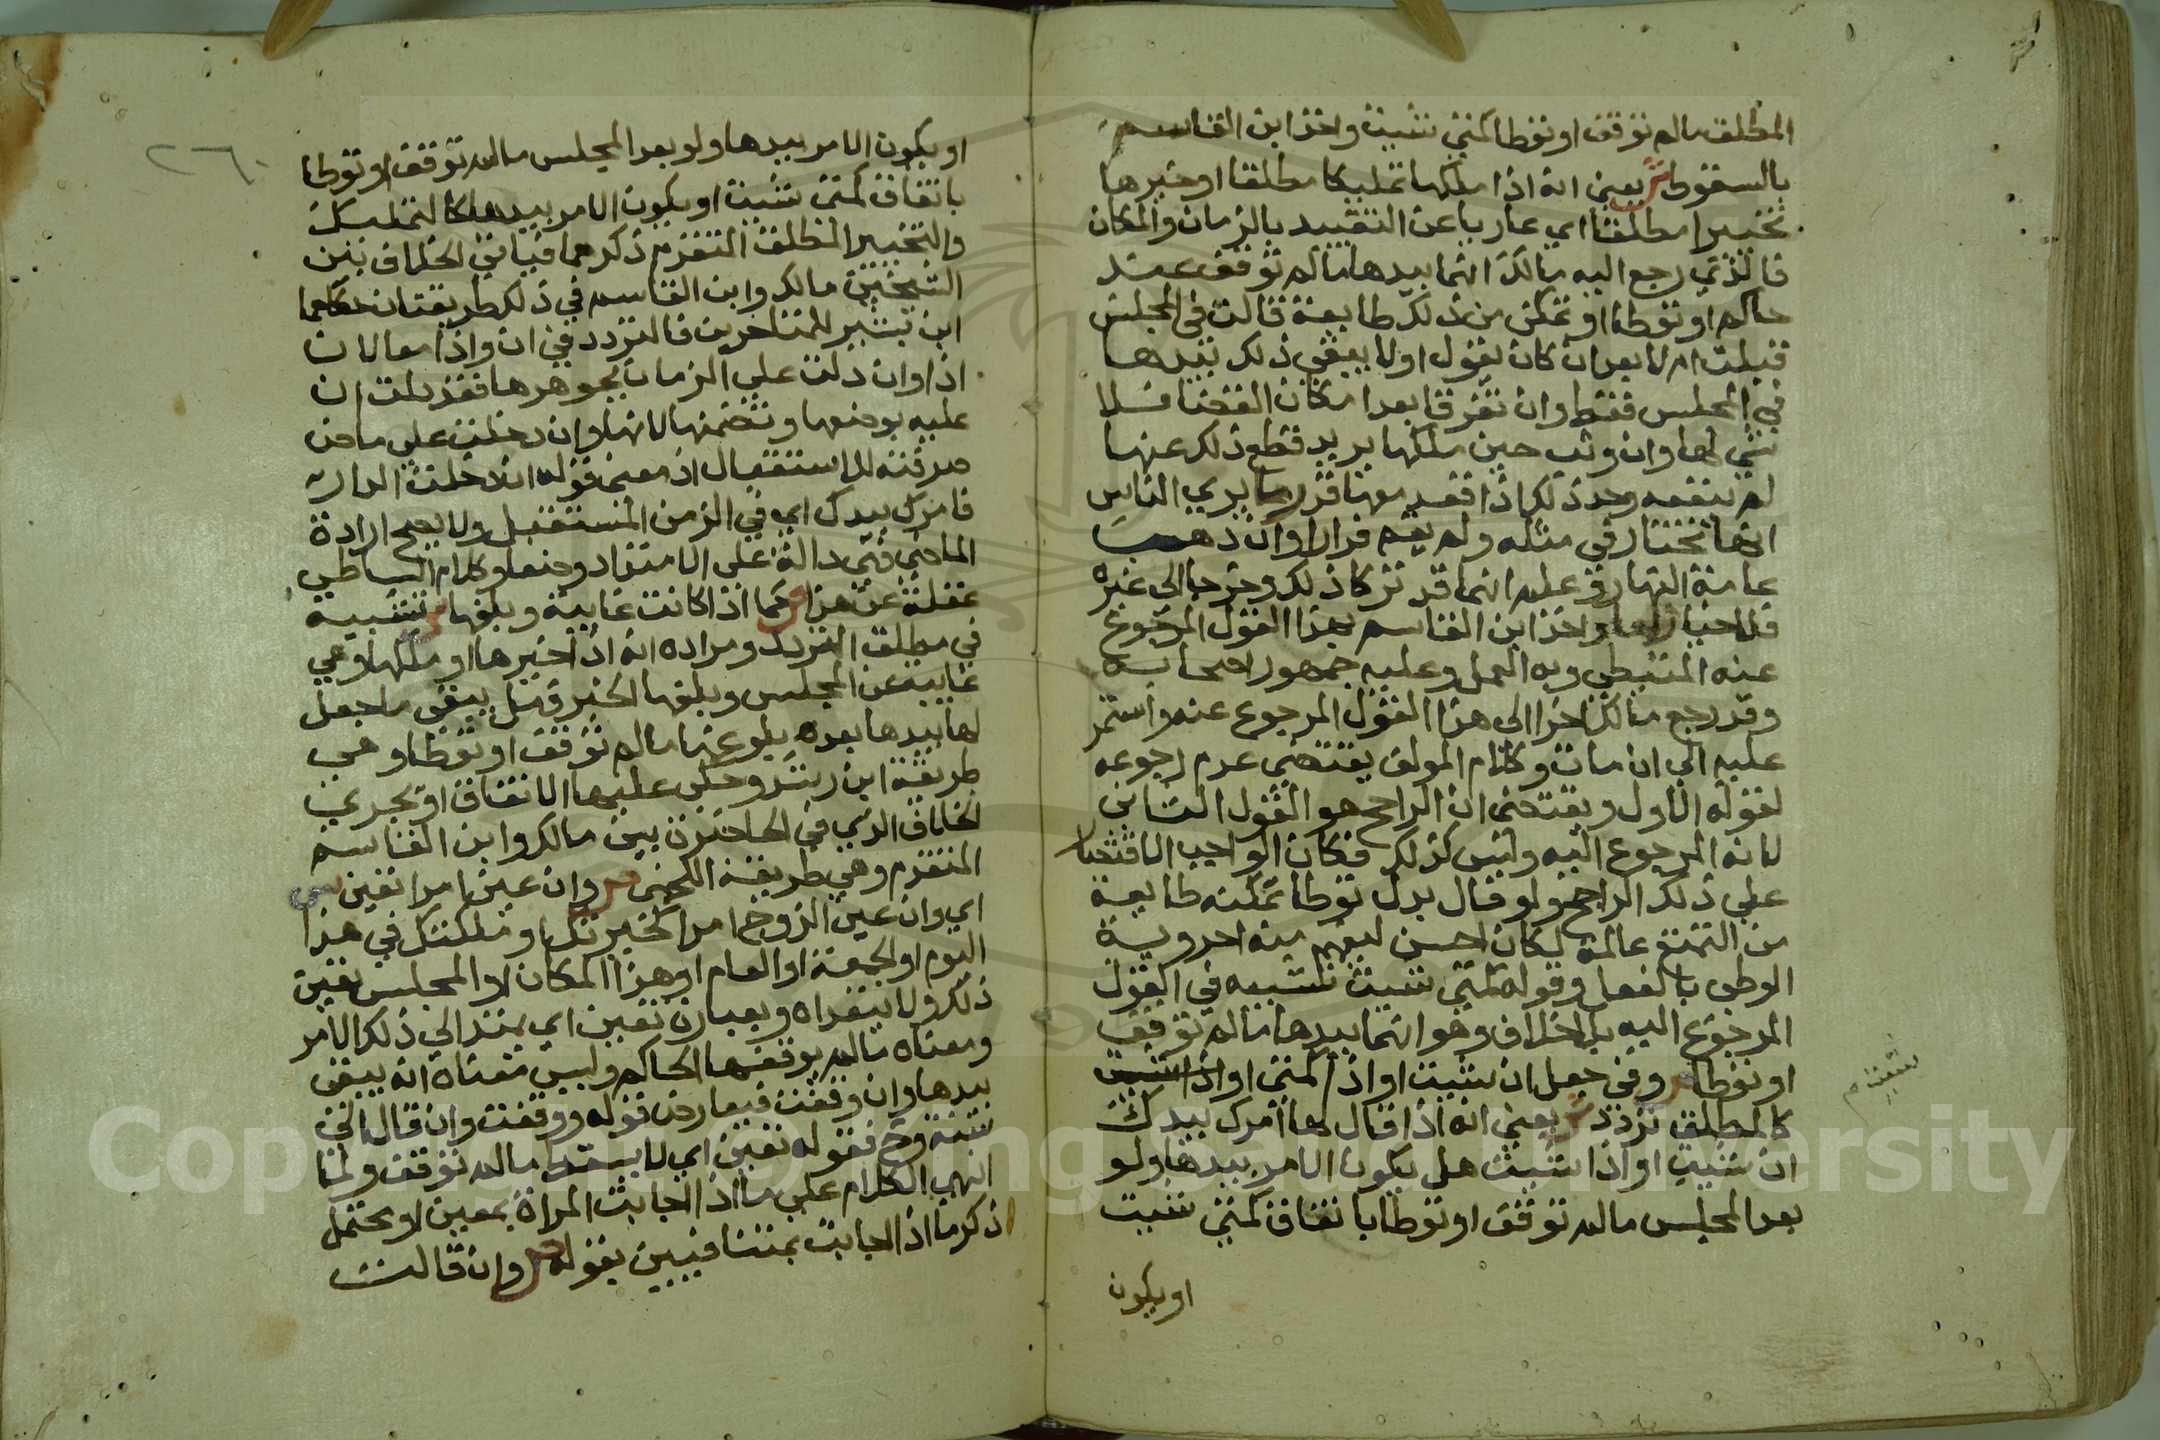 المطلق مالم توقف او توطا كمتى شيت واخذ ابن القاسم
بالسقوط ش يعني انه اذا ملكها تمليكا مطلقا او خيرها
تخييرا مطلقا اي عاريا عن التقييد بالزمان والمكان
فالذي رجع اليه مالك انما بيدها مالم توقف عند
حاكم او توطا او تمكن من ذلك طايعة قالت في المجلس
قبلت ام لا بعد ان كان يقول اولا يبقى ذلك بيدها
في المجلس فقط وان تفرقا بعد امكان القضا فلا
شي لها وان وثب حين ملكها يريد قطع ذلك عنها
لم ينفعه وحد ذلك اذا قعد معها قدر ما يرى الناس
انها تختار في مثله ولم يقم فرارا وان ذهب
عامة النهار وعلم انهما قد تركا ذلك وخرجا الى غيره
فلا خيار لها واخذ ابن القاسم بهذا القول المرجوع
عنه المتيطي وبه العمل وعليه جمهور اصحابه
وقد رجع مالك اخرا الى هذا القول المرجوع عنه واستمر
عليه الى ان مات وكلام المولف يقتضي عدم رجوعه
لقوله الاول ويقتضي ان الراجح هو القول الثاني
لانه المرجوع اليه وليس كذلك فكان الواجب الاقتصار
على ذلك الراجح ولو قال بدل توطا تمكنه طايعة
من التمتع عالمة لكان احسن ليفهم منه احروية
الوطي بالفعل وقوله كمتى شيت تشبيه في القول
المرجوع اليه بلا خلاف وهو انما بيدها مالم توقف
او توطا ص وفي جعل ان شيت او اذا كمتى او
كالمطلق تردد ش يعني انه اذا قال لها امرك بيدك
ان شيت او اذا شيت هل يكون الامر بيدها ولو
بعد المجلس مالم توقف او توطا باتفاق كمتى شيت
او يكون
٢٦٠
او يكون الامر بيدها ولو بعد المجلس مالم توقف او توطا
باتفاق كمتى شيت او يكون الامر بيدها كالتمليك
والتخيير المطلق المتقدم ذكرهما فياتي الخلاف بين
الشيخين مالك وابن القاسم في ذلك طريقتان حكاهما
ابن بشير للمتاخرين فالتردد في ان واذا معا لان
اذا وان دلت على الزمان بجوهرها فقد دلت ان
عليه بوضعها وتضمنها لانها وان دخلت على ماض
صرفته للاستقبال اذ معنى قوله ان دخلت الدار
فامرك بيدك اي في الزمن المستقبل ولا يصح ارادة
الماضي فهي دالة على الامتداد وضعا وكلام البساطي
غفلة عن هذا ص كما اذا كانت غايبة وبلغها ش تشبيه
في مطلق التردد ومراده انه اذا خيرها او ملكها وهي
غايبة عن المجلس وبلغها الخبر فهل يبقى ما جعل
لها بيدها بعد بلوغها مالم توقف او توطا وهي
طريقة ابن رشد وحكى عليها الاتفاق او يجري
الخلاف الذي في الحاضرة بين مالك وابن القاسم
المتقدم وهي طريقة اللخمي ص وان عين امرا تعين ش
اي وان عين الزوج امرا كخيرتك او ملكتك في هذا
اليوم او الجمعة او العام او هذا المكان او المجلس تعين
ذلك ولا يتعداه وبعبارة تعين اي يمتد الى ذلك الامر
ومعناه مالم يوقفها الحاكم وليس معناه انه يبقى
بيدها وان وقفت فيعارض قوله ووقفت وان قال الى
سنة وح فقوله تعين اي لا يسقط مالم توقف ولما
انهى الكلام على ما اذا اجابت المراة بمعين او محتمل
ذكر ما اذا اجابت بمتنافيين بقوله ص وان قالت